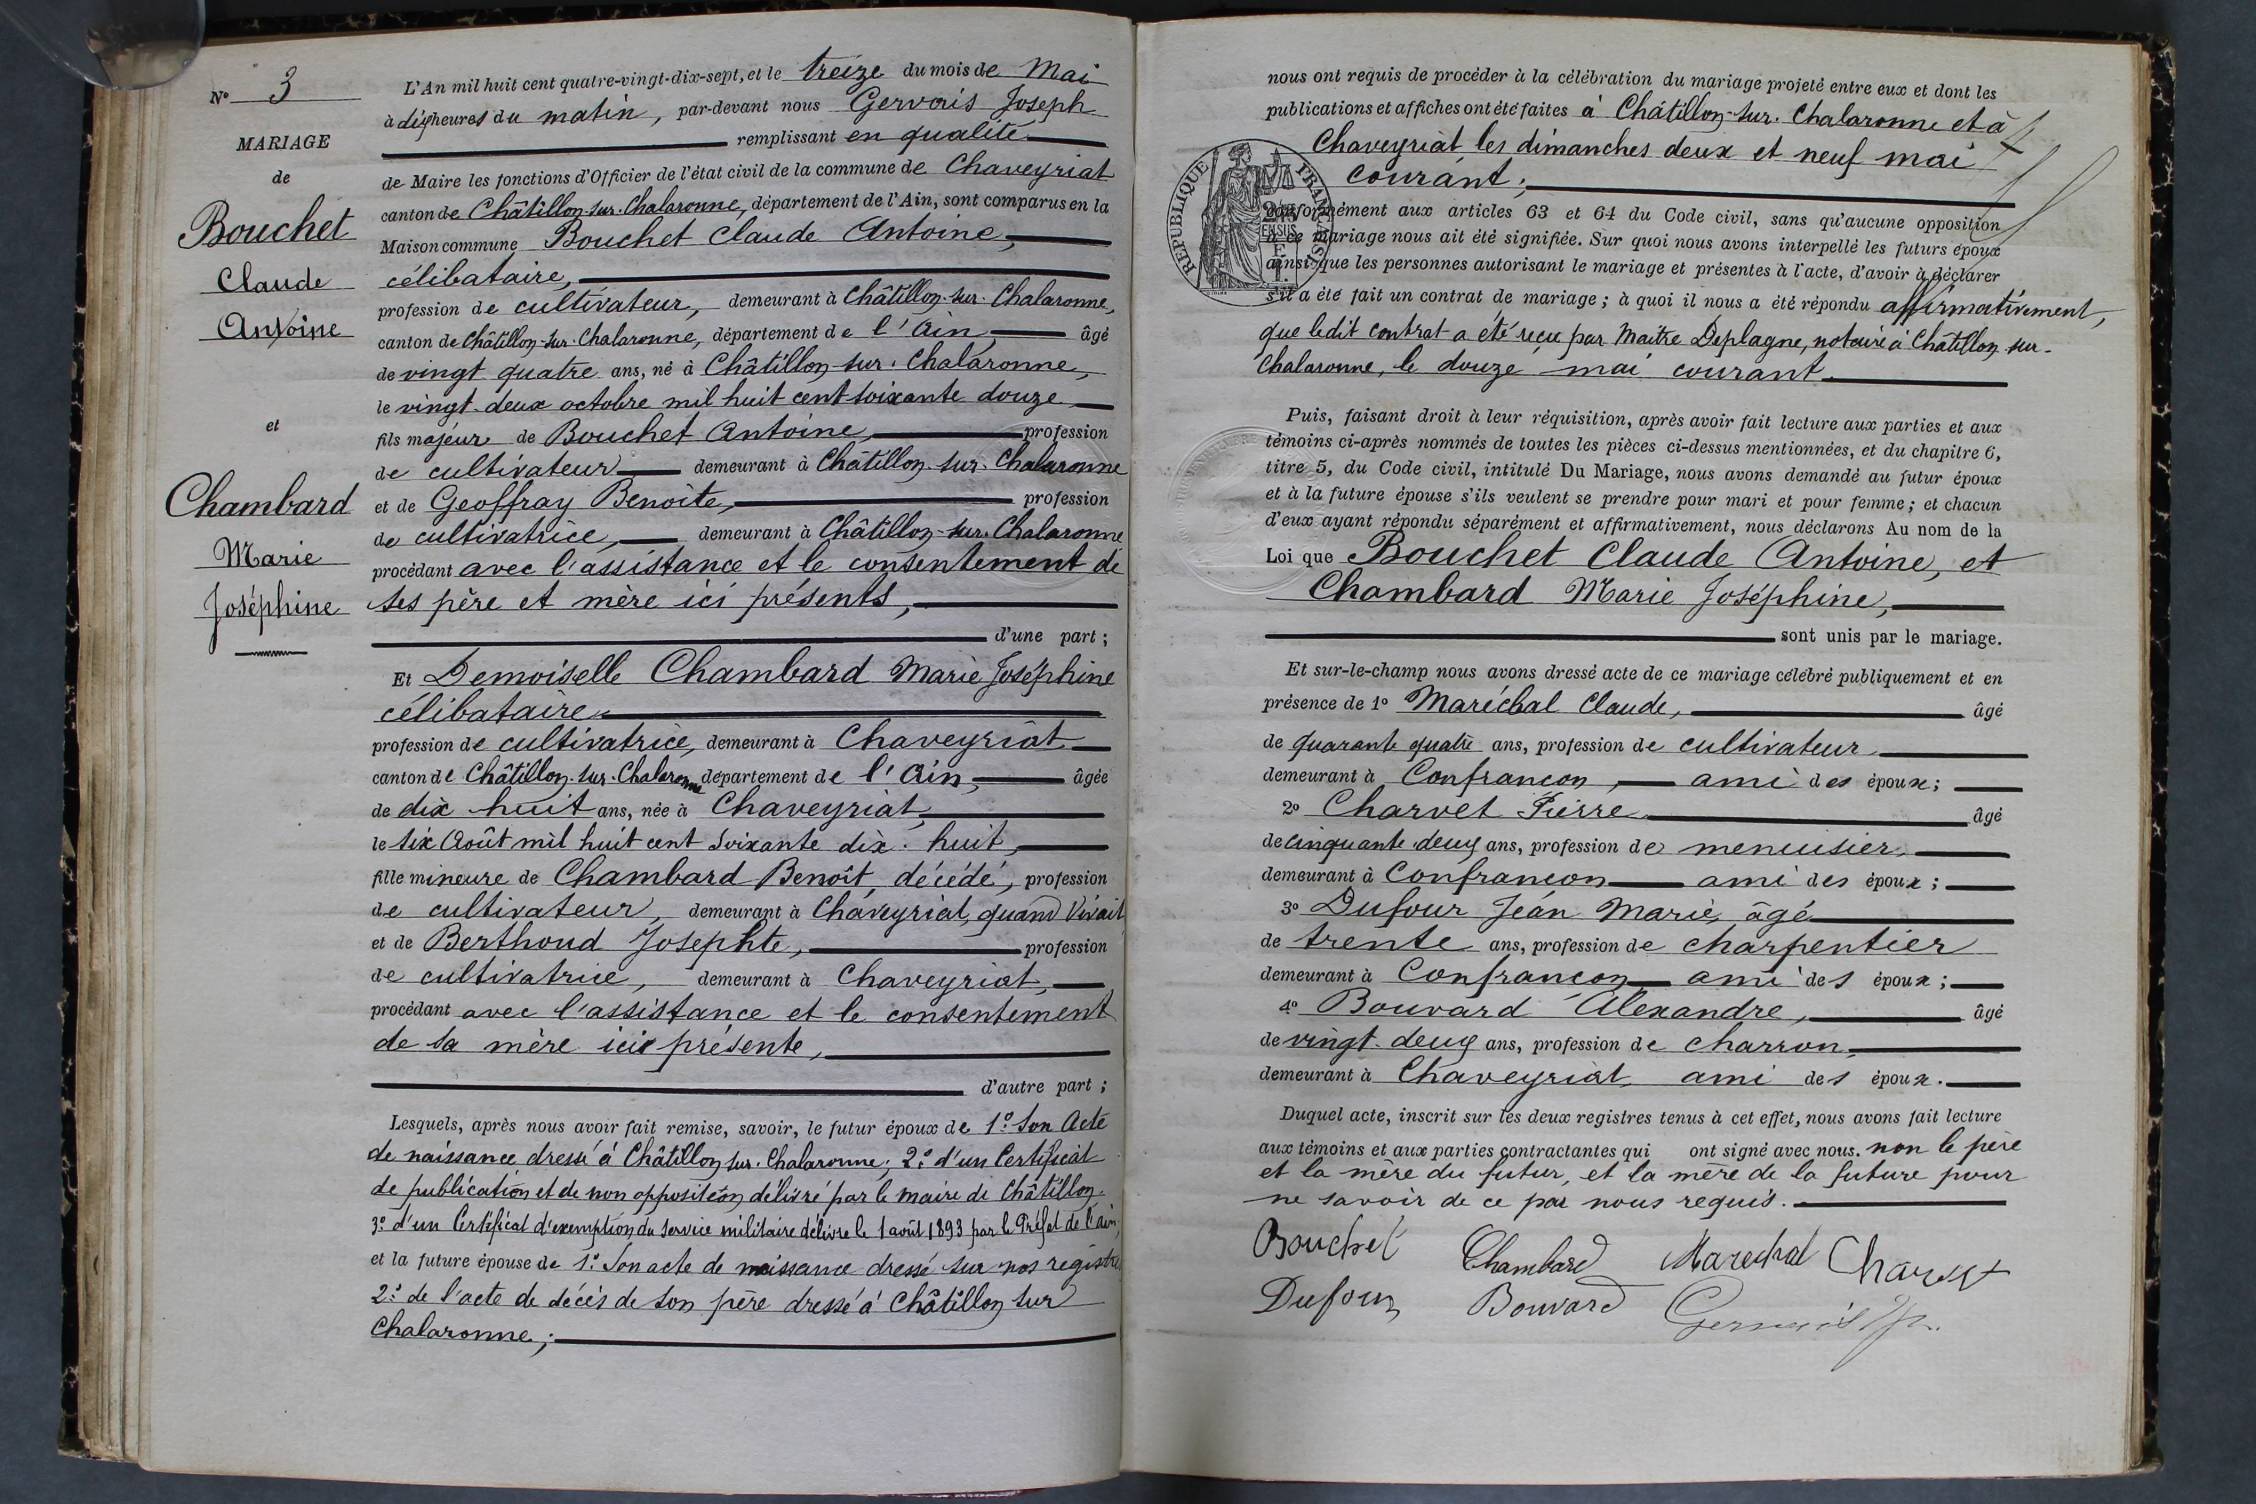 N° 3
MARIAGE
de
Bouchet
Claude
Antoine
et
Chambard
Marie
Joséphine
L'An mil huit cent quatre-vingt-dix-sept, et le treize du mois de Mai
à dix heures du matin, par-devant nous Gervais Joseph
remplissant en qualité
de Maire les fonctions d'Officier de l'état civil de la commune de Chaveyriat
canton de Châtillon-sur-Chalaronne, département de l'Ain, sont comparus en la
Maison commune Bouchet Claude Antoine,
célibataire,
profession de cultivateur, demeurant à Châtillon-sur-Chalaronne,
canton de Châtillon-sur-Chalaronne, département de l'Ain, âgé
de vingt quatre ans, né à Châtillon-sur-Chalaronne,
le vingt-deux octobre mil huit cent soixante douze
fils majeur de Bouchet Antoine, profession
de cultivateur demeurant à Châtillon-sur-Chalaronne
et de Geoffray Benoîte, profession
de cultivatrice, demeurant à Châtillon-sur-Chalaronne
procédant avec l'assistance et le consentement de
ses père et mère ici présents,
d'une part ;
Et Demoiselle Chambard Marie Joséphine
célibataire
profession de cultivatrice, demeurant à Chaveyriat
canton de Châtillon-sur-Chalaronne département de l'Ain, âgée
de dix huit ans, née à Chaveyriat,
le six Août mil huit cent soixante dix-huit,
fille mineure de Chambard Benoît, décédé, profession
de cultivateur, demeurant à Chaveyriat, quand vivait
et de Berthoud Josephte, profession
de cultivatrice, demeurant à Chaveyriat,
procédant avec l'assistance et le consentement
de sa mère ici présente,
d'autre part ;
Lesquels, après nous avoir fait remise, savoir, le futur époux de 1° son Acte
de naissance dressé à Châtillon sur-Chalaronne; 2° d'un Certificat
de publication et de non opposition délivré par le maire de Châtillon.
3° d'un Certificat d'exemption du service militaire délivré le 1 août 1893 par le Préfet de l'Ain,
et la future épouse de 1° Son acte de naissance dressé sur nos registres
2° de l'acte de décès de son père dressé à Châtillon sur
Chalaronne;
nous ont requis de procéder à la célébration du mariage projeté entre eux et dont les
publications et affiches ont été faites à Châtillon-sur-Chalaronne et à
Chaveyriat les dimanches deux et neuf mai
courant;
RÉPUBLIQUE FRANÇAISE
conformément aux articles 63 et 64 du Code civil, sans qu'aucune opposition
à ce mariage nous ait été signifiée. Sur quoi nous avons interpellé les futurs époux
ainsi que les personnes autorisant le mariage et présentes à l'acte, d'avoir à déclarer
s'il a été fait un contrat de mariage ; à quoi il nous a été répondu affirmativement,
que ledit contrat a été reçu par Maître Deplagne, notaire à Châtillon sur-
Chalaronne, le douze mai courant
Puis, faisant droit à leur réquisition, après avoir fait lecture aux parties et aux
témoins ci-après nommés de toutes les pièces ci-dessus mentionnées, et du chapitre 6,
titre 5, du Code civil, intitulé Du Mariage, nous avons demandé au futur époux
et à la future épouse s'ils veulent se prendre pour mari et pour femme ; et chacun
d'eux ayant répondu séparément et affirmativement, nous déclarons Au nom de la
Loi que Bouchet Claude Antoine, et
Chambard Marie Joséphine,
sont unis par le mariage.
Et sur-le-champ nous avons dressé acte de ce mariage célébré publiquement et en
présence de 1° Maréchal Claude, âgé
de quarante quatre ans, profession de cultivateur
demeurant à Confrançon, ami des époux ;
2° Charvet Pierre âgé
de cinquante deux ans, profession de menuisier,
demeurant à Confrançon ami des époux ;
3° Dufour Jean Marie, âgé
de trente ans, profession de charpentier
demeurant à Confrançon ami des époux ;
4° Bouvard Alexandre, âgé
de vingt-deux ans, profession de charron,
demeurant à Chaveyriat, ami des époux.
Duquel acte, inscrit sur les deux registres tenus à cet effet, nous avons fait lecture
aux témoins et aux parties contractantes qui ont signé avec nous. non le père
et la mère du futur, et la mère de la future pour
ne savoir de ce par nous requis.
Bouchet Chambard Marechal Charvet
Dufour Bouvard Gervais Jph.